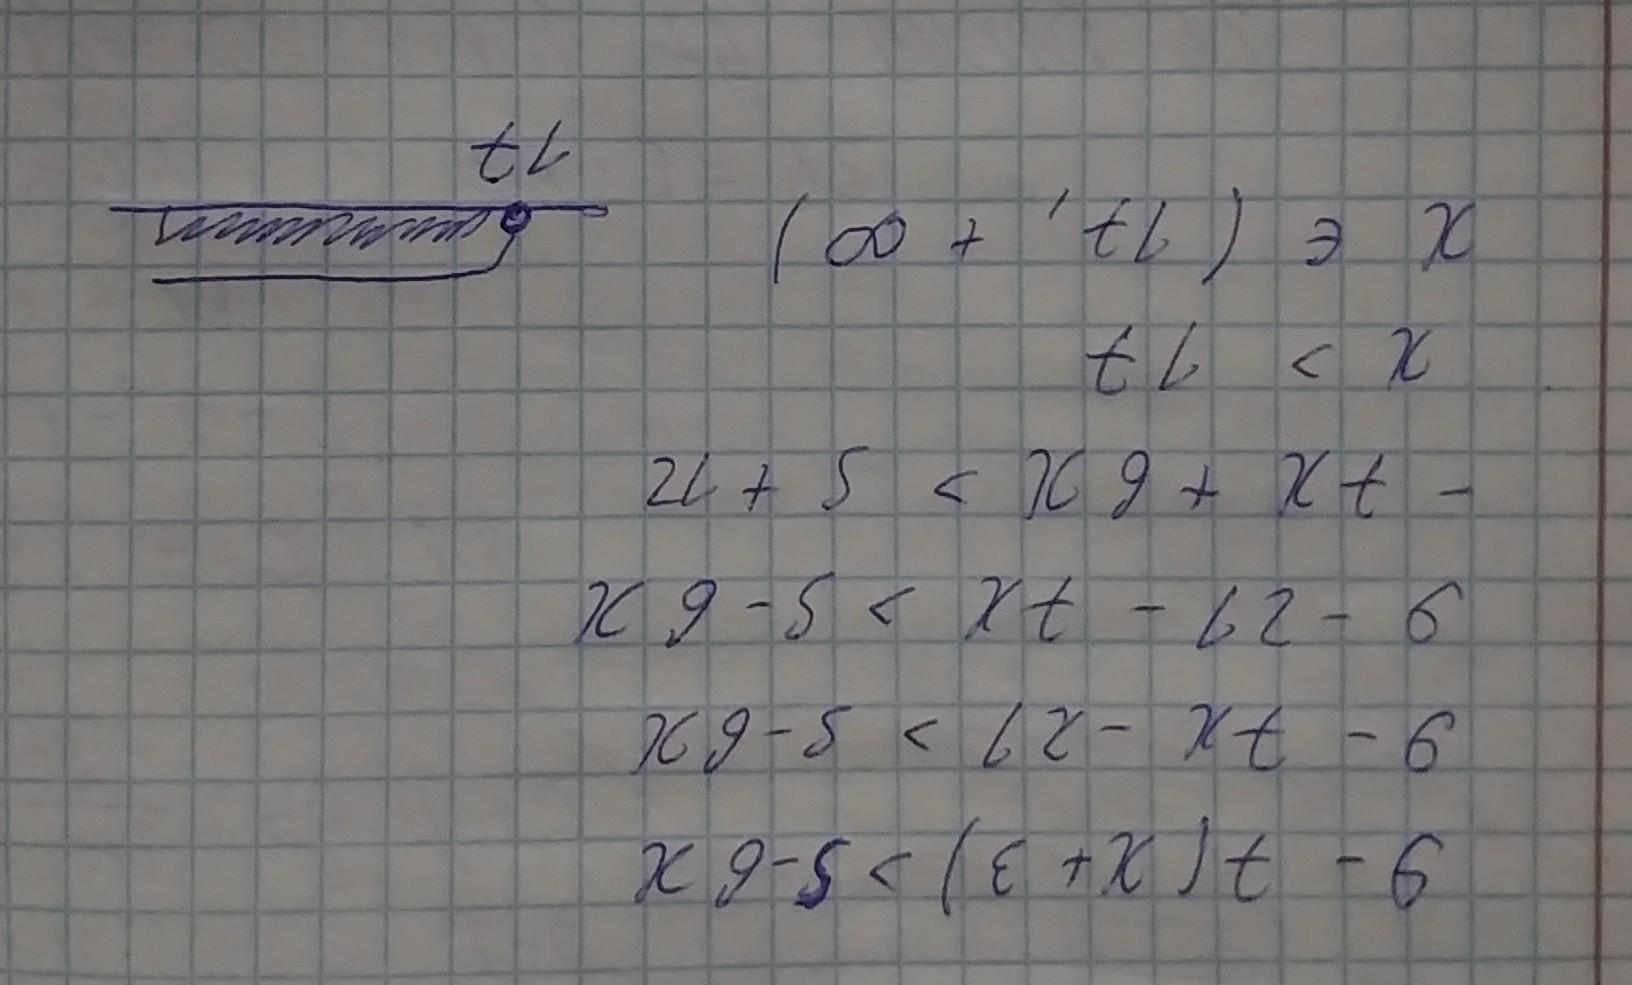 9 - 7(x + 3) > 5 - 6x
9 - 7x - 21 > 5 - 6x
9 - 21 - 7x > 5 - 6x
- 7x + 6x > 5 + 12
x > 17
x ∈ (17, +∞)
17